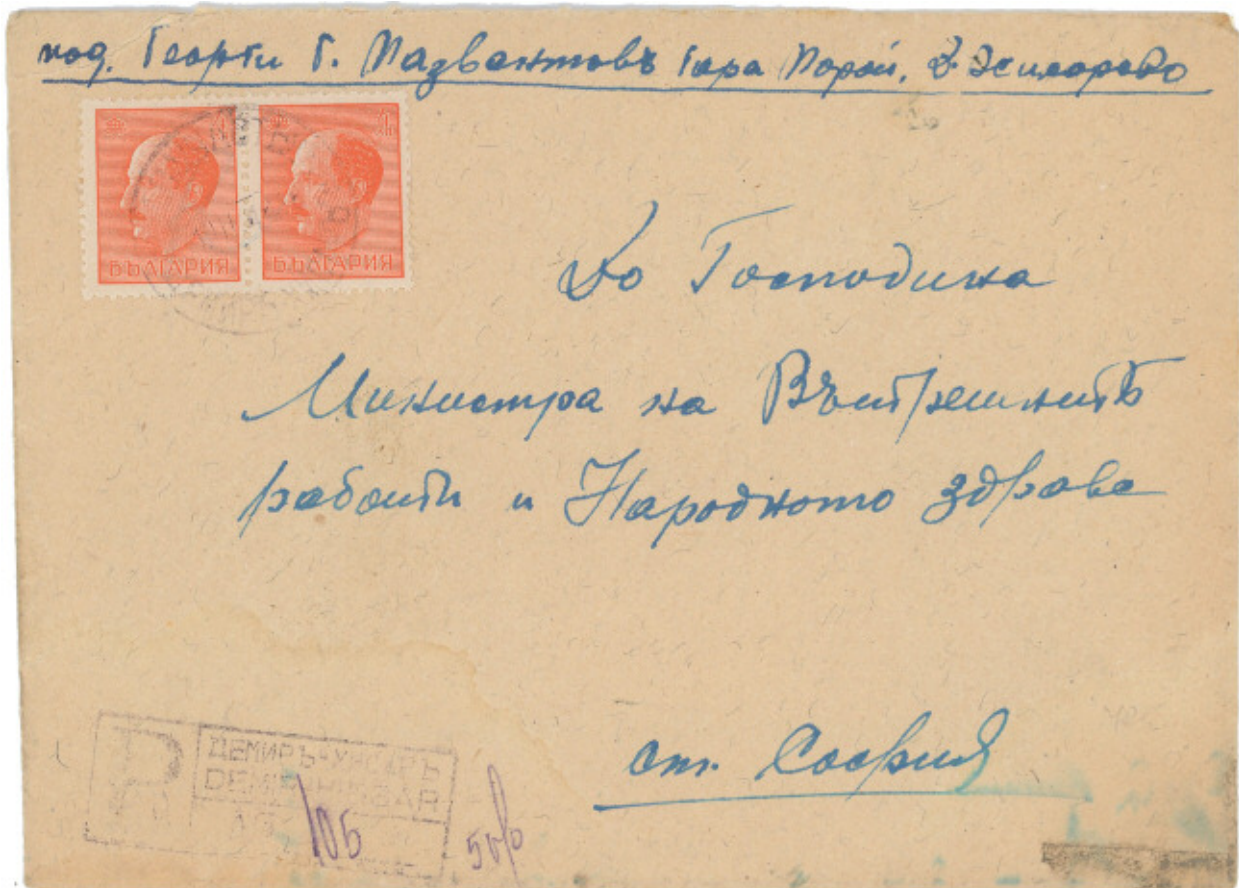 под. Георги Г. гара Порой,
4 4
БЪЛГАРИЯ БЪЛГАРИЯ
До Господина
Министра на Вѫтрешнитѣ
работи и Народното здраве
ст. София
R ДЕМИРЪ-ХИСАРЪ
DEMIR-HISSAR
№ 106